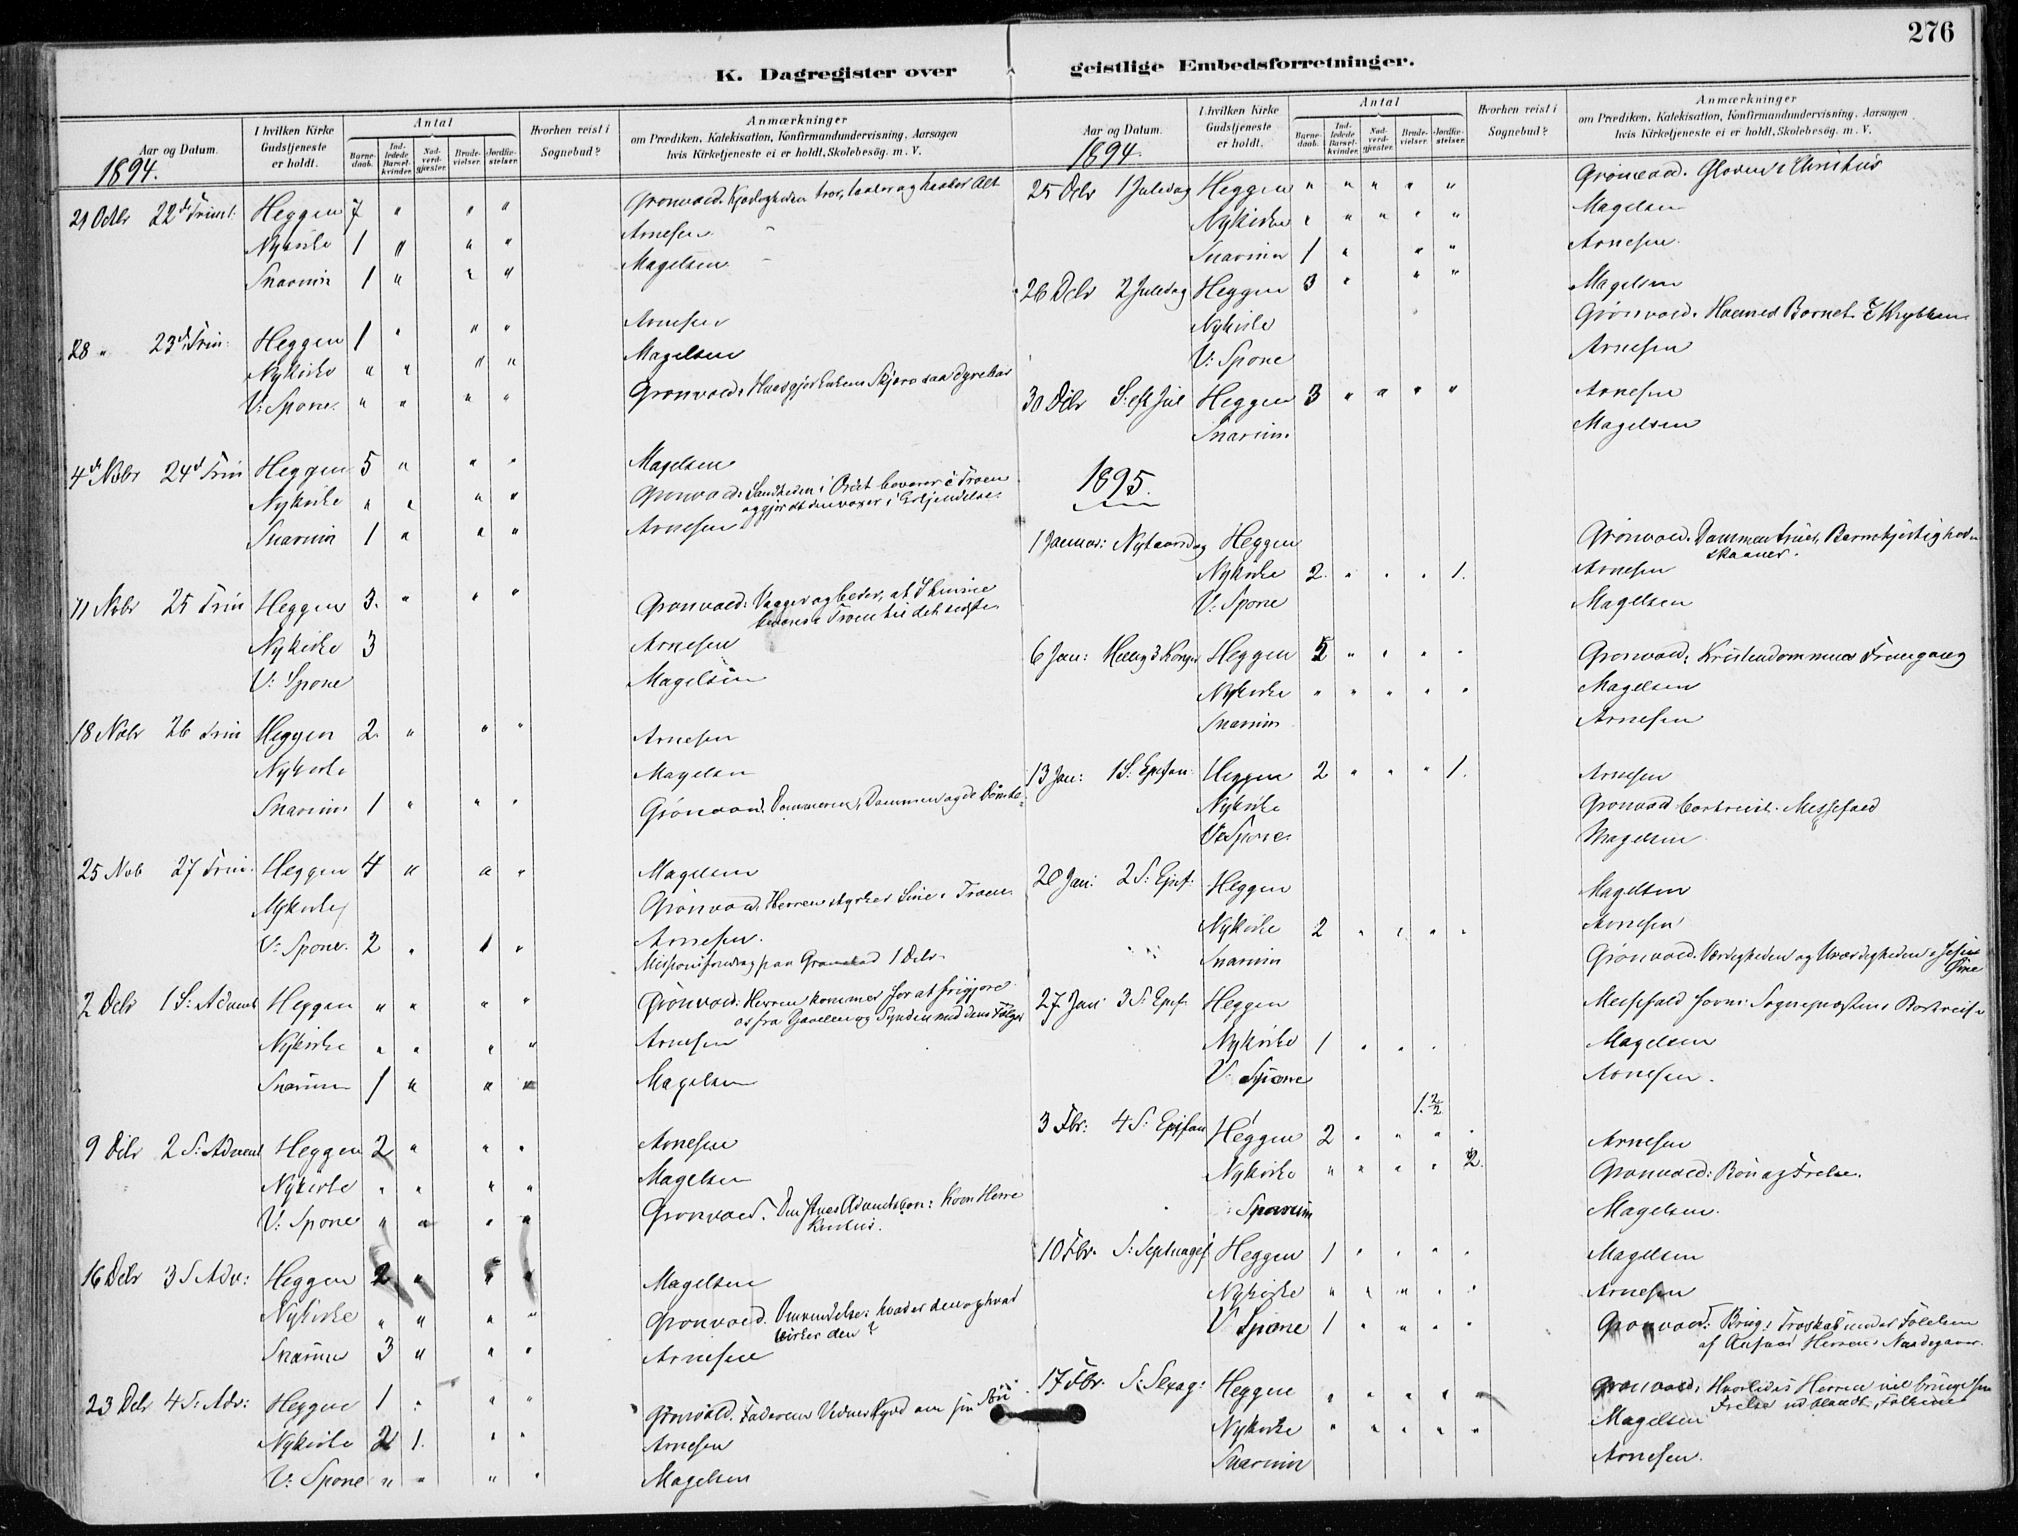 276
K. Dagregister over geistlige Embedsforretninger.
Aar og Datum. I hvilken Kirke Gudstjeneste er holdt. Antal Barnedaab. Indledede Barselkvinder. Nadverdgjæster. Brudevielser. Jordfæstelser. Hvorhen reist i Sognebud? Anmærkninger om Prædiken, Katekisation, Konfirmandundervisning, Aarsagen hvis Kirketjeneste ei er holdt, Skolebesög. m. V.
1894.
21 Octbr 22d Trinit: Heggen 7 " " " Grønvold. Kjærligheden tror, taaler og haaber Alt
Nykirke 1 " " " Arnesen
Snarum 1 " " " Magelsen
28 " 23d Trin: Heggen 1 " " " Arnesen
Nykirke " " " " Magelsen
V: Spone. " " " " Grønvold:
4de Nobr 24d Trin Heggen 5 " " " Magelsen
Nykirke " " " " Grønvold: Sandheden i Ordet bevarer i Troen
og gjør at den voxer i Erkjendelse.
Snarum 1 " " " Arnesen
11 Nobr 25 Trin Heggen 3. " " " Grønvold: Vaager og beder, at I kunne
bevares i Troen til det sidste
Nykirke 3 Arnesen
V: Spone Magelsen
18 Nobr 26 Trin Heggen 2 " " " Arnesen
Nykirke Magelsen
Snarum 1 " " " Grønvold. Dommeren, Dommen og de Dømte
25 Nob 27 Trin. Heggen 4 " " " Magelsen
Nykirke Grønvold. Herren styrker Sine i Troen
V: Spone. 2 " 1 " Arnesen.
Missionsforedrag paa 1 Debr.
2 Debr 1 S: Advent Heggen " " " " Grønvold: Herren kommer for at frigjøre
os fra Djævelen og Synden med dens Følger
Nykirke " " " " Arnesen
Snarum 1 " " " Magelsen
9 Debr 2 S: Advent Heggen 2 " " " Arnesen
Nykirke " " " " Magelsen
V: Spone " " " " Grønvold. Kom Herre
16 Debr 3 S Adv: Heggen 2 " " " Magelsen
Nykirke " " " " Grønvold. Omvendelse: hvad er den og hvad
virker den?
Snarum 3 " " " Arnesen
23 Debr 4 S: Adv: Heggen 1 " " " Grønvold. Faderens Vidnesbyrd om sin Søn
Nykirke 2 1. " " Arnesen
V: Spone " " " " Magelsen
Aar og Datum. I hvilken Kirke Gudstjeneste er holdt. Antal Barnedaab. Indledede Barselkvinder. Nadverdgjæster. Brudevielser. Jordfæstelser. Hvorhen reist i Sognebud? Anmærkninger om Prædiken, Katekisation, Konfirmandundervisning, Aarsagen hvis Kirketjeneste ei er holdt. Skolebesög. m. V.
1894.
25 Debr 1 Juledag Heggen " " " " " Grønvold. Christus
Nykirke " " " " " Magelsen
Snarum 1 " " " Arnesen.
26 Debr 2 Juledag Heggen 3 " " " Magelsen
Nykirke Grønvold. Barnet i Krybben
V: Spone Arnesen
30 Debr S: eft Jul Heggen 3 " " " " Arnesen
Snarum Magelsen
1895.
1 Januar: Nytaarsdag Heggen Grønvold.
skaaner.
Nykirke 2. " " " 1. Arnesen
V: Spone Magelsen
6 Jan: Hellig 3 Konger Heggen 5 " " " " Grønvold: Kristendommens Fremgang
Nykirke " " " " " Magelsen
Snarum Arnesen
13 Jan: 1 S: Epifan: Heggen 2 " " " 1. Arnesen
Nykirke Grønvold bortreist. Messefald
V: Spone. Magelsen
20 Jan: 2 S: Epif: Heggen Magelsen
Nykirke 2 " " " " Arnesen
Snarum Grønvold. Værdigheden og Uværdigheden i Jesu
Øine
27 Jan: 3 S: Epif: Heggen Messefald form: Sognepræstens Bortreise
Nykirke 1 " " " Magelsen
V: Spone Arnesen.
1. 2/2
3 Fbr: 4 S: Epifan Heggen 2 " " " " Arnesen
Nykirke " " " " 2. Grønvold: Bøn og Frelse.
Snarum Magelsen.
10 Fbr. S: Septuages Heggen 1 " " " " Magelsen
Nykirke " " " " " Arnesen
V Spone 1 " " " " Grønvold: Brug i Troskab under Følelsen
af Ansvar Herrens Naadegaver.
17 Fbr. S: Sexag: Heggen " " " " " Grønvold: Hvorledes Herren vil bringe sin
Frelse ud blandt Folkene
Nykirke " " " " " Magelsen
Snarum Arnesen.